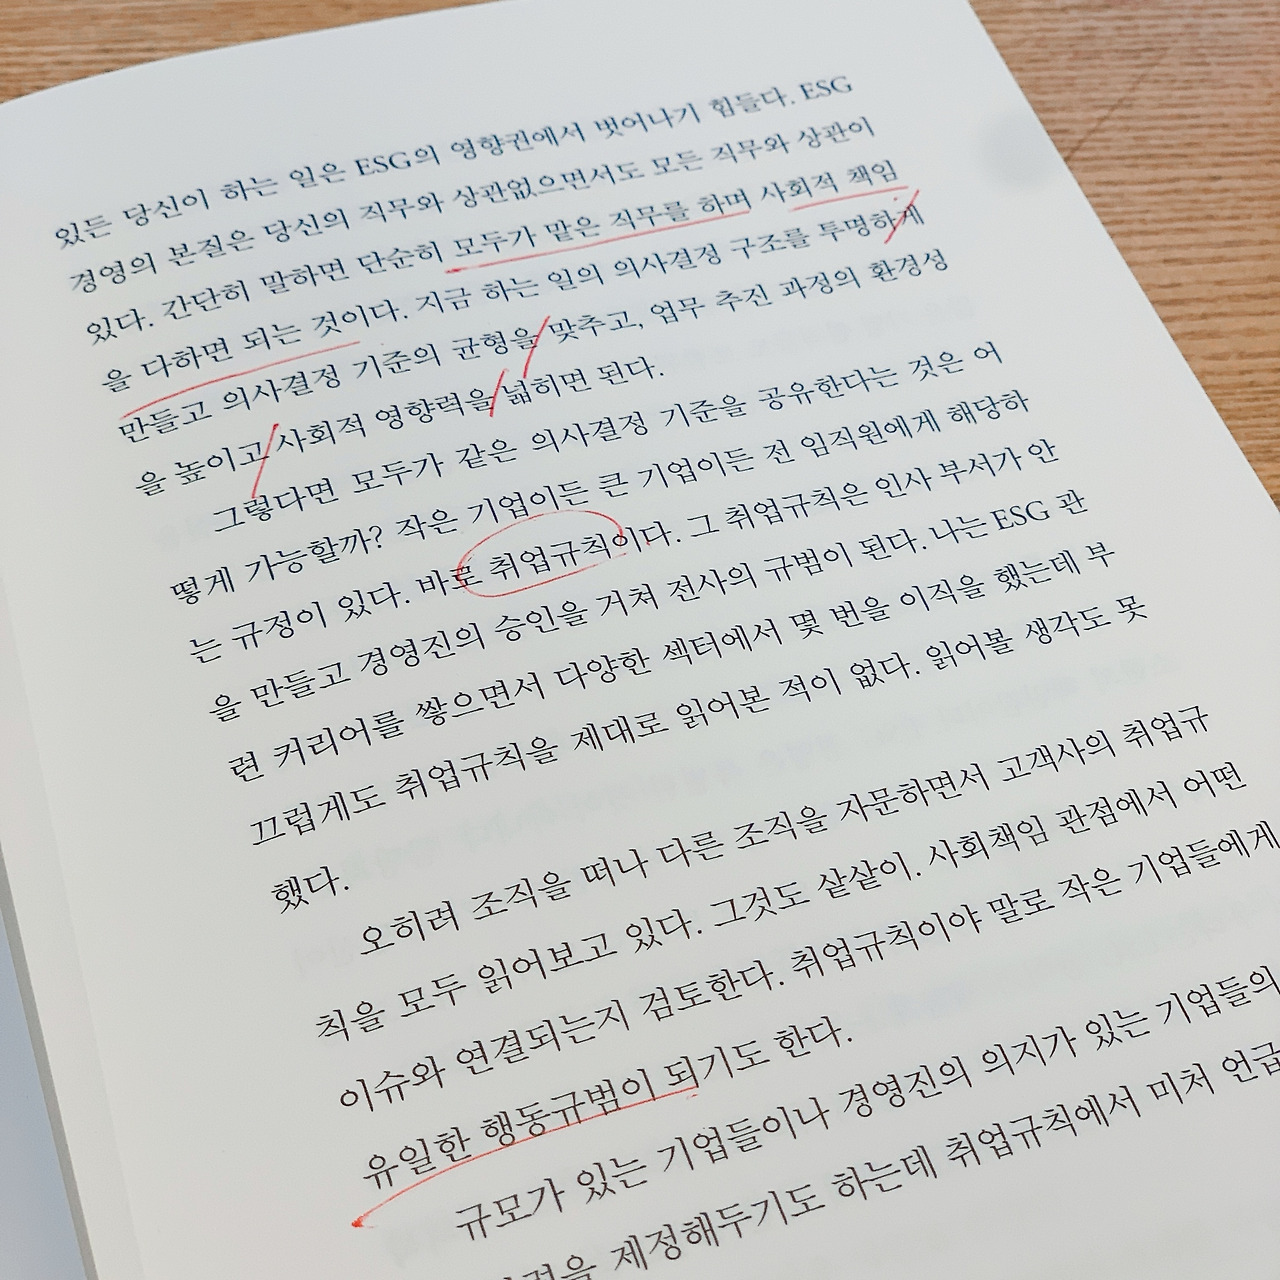 있든 당신이 하는 일은 ESG의 영향권에서 벗어나기 힘들다. ESG
경영의 본질은 당신의 직무와 상관없으면서도 모든 직무와 상관이
있다. 간단히 말하면 단순히 모두가 맡은 직무를 하며 사회적 책임
을 다하면 되는 것이다. 지금 하는 일의 의사결정 구조를 투명하게
만들고 의사결정 기준의 균형을 맞추고, 업무 추진 과정의 환경성
을 높이고 사회적 영향력을 넓히면 된다.
그렇다면 모두가 같은 의사결정 기준을 공유한다는 것은 어
떻게 가능할까? 작은 기업이든 큰 기업이든 전 임직원에게 해당하
는 규정이 있다. 바로 취업규칙이다. 그 취업규칙은 인사 부서가 안
을 만들고 경영진의 승인을 거쳐 전사의 규범이 된다. 나는 ESG 관
련 커리어를 쌓으면서 다양한 섹터에서 몇 번을 이직을 했는데 부
끄럽게도 취업규칙을 제대로 읽어본 적이 없다. 읽어볼 생각도 못
했다.
오히려 조직을 떠나 다른 조직을 자문하면서 고객사의 취업규
칙을 모두 읽어보고 있다. 그것도 샅샅이. 사회책임 관점에서 어떤
이슈와 연결되는지 검토한다. 취업규칙이야 말로 작은 기업들에게
유일한 행동규범이 되기도 한다.
규모가 있는 기업들이나 경영진의 의지가 있는 기업들의
제정해두기도 하는데 취업규칙에서 미처 언급